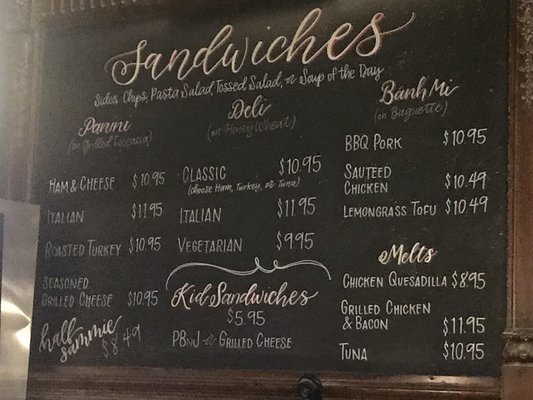 Sandwiches
Sides Chips, Pasta Salad, Tossed Salad, or Soup of the Day
Panini
(on Grilled Foccacia)
HAM & CHEESE $10.95
ITALIAN $11.95
ROASTED TURKEY $10.95
SEASONED
GRILLED CHEESE $10.95
half
sammie $8.49
Deli
(on Honey Wheat)
CLASSIC $10.95
(choose Ham, Turkey, or Tuna)
ITALIAN $11.95
VEGETARIAN $9.95
Kid Sandwiches
$5.95
PBnJ or GRILLED CHEESE
Bánh Mi
(on Baguette)
BBQ PORK $10.95
SAUTEED
CHICKEN $10.49
LEMONGRASS TOFU $10.49
Melts
CHICKEN QUESADILLA $8.95
GRILLED CHICKEN
& BACON $11.95
TUNA $10.95